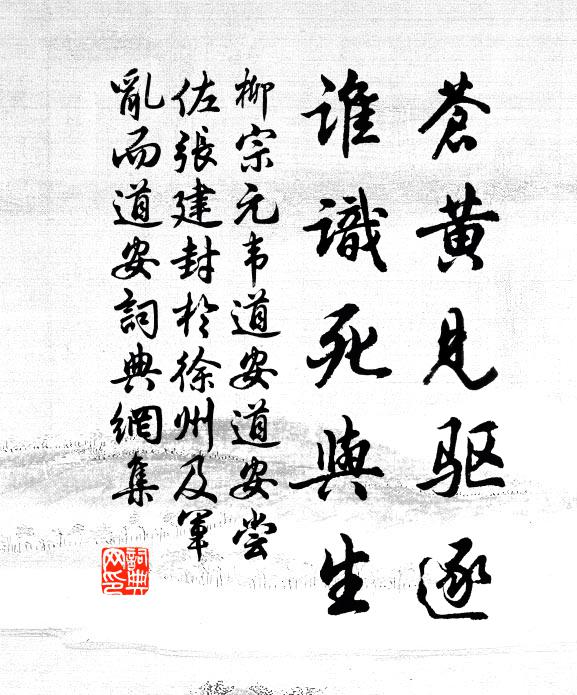 蒼黄見驱逐
誰識死與生
柳宗元韦道安道安尝
佐張建封於徐州及軍
亂而道安詞典網集
詞典
网印